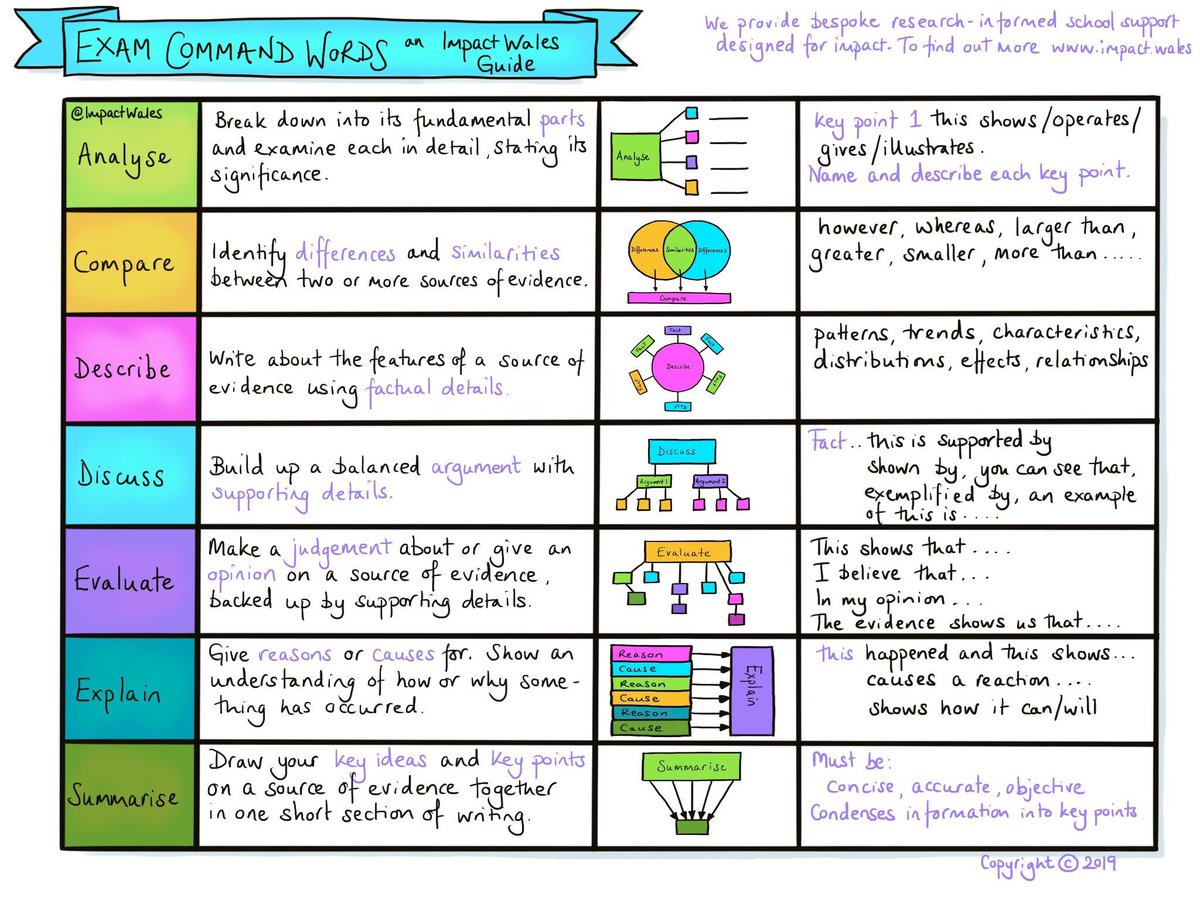 EXAM COMMAND WORDS an Impact Wales Guide
We provide bespoke research-informed school support
designed for impact. To find out more www.impact.wales
@ImpactWales
Analyse
Break down into its fundamental parts
and examine each in detail, stating its
significance.
Analyse
key point 1 this shows/operates/
gives/illustrates.
Name and describe each key point.
Compare
Identify differences and similarities
between two or more sources of evidence.
Differences
Similarities
Differences
Compare
however, whereas, larger than,
greater, smaller, more than.....
Describe
Write about the features of a source of
evidence using factual details.
Fact
Fact
Fact
Describe
Fact
Fact
Fact
patterns, trends, characteristics,
distributions, effects, relationships
Discuss
Build up a balanced argument with
supporting details.
Discuss
Argument 1
Argument 2
Fact.. this is supported by
shown by, you can see that,
exemplified by, an example
of this is....
Evaluate
Make a judgement about or give an
opinion on a source of evidence,
backed up by supporting details.
Evaluate
This shows that....
I believe that...
In my opinion...
The evidence shows us that....
Explain
Give reasons or causes for. Show an
understanding of how or why some-
thing has occurred.
Reason
Cause
Reason
Cause
Reason
Cause
Explain
this happened and this shows...
causes a reaction....
shows how it can/will
Summarise
Draw your key ideas and key points
on a source of evidence together
in one short section of writing.
Summarise
Must be:
Concise, accurate, objective
Condenses information into key points
Copyright © 2019